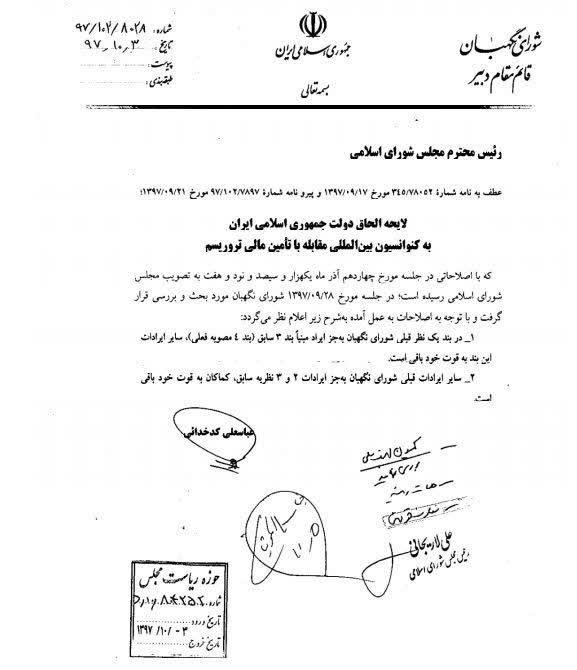 شورای نگهبان
قائم مقام دبیر
جمهوری اسلامی ایران
بسمه تعالی
شماره: ۹۷/۱۰۲/۸۰۲۸
تاریخ: ۹۷.۱۰.۳
پیوست:
طبقه‌بندی:
رئیس محترم مجلس شورای اسلامی
عطف به نامه شمارهٔ ۳۴۵/۷۸۰۵۲ مورخ ۱۳۹۷/۰۹/۱۷ و پیرو نامه شمارهٔ ۹۷/۱۰۲/۷۸۹۷ مورخ ۱۳۹۷/۰۹/۲۱؛
لایحه الحاق دولت جمهوری اسلامی ایران
به کنوانسیون بین‌المللی مقابله با تأمین مالی تروریسم
که با اصلاحاتی در جلسه مورخ چهاردهم آذر ماه یکهزار و سیصد و نود و هفت به تصویب مجلس
شورای اسلامی رسیده است؛ در جلسه مورخ ۱۳۹۷/۰۹/۲۸ شورای نگهبان مورد بحث و بررسی قرار
گرفت و با توجه به اصلاحات به عمل آمده به‌شرح زیر اعلام نظر می‌گردد:
۱_ در بند یک نظر قبلی شورای نگهبان به‌جز ایراد مبنیاً بند ۳ سابق (بند ٤ مصوبه فعلی)، سایر ایرادات
این بند به قوت خود باقی است.
۲_ سایر ایرادات قبلی شورای نگهبان به‌جز ایرادات ۲ و ۳ نظریه سابق، کماکان به قوت خود باقی
است.
عباسعلی کدخدائی
علی لاریجانی
رئیس مجلس شورای اسلامی
حوزه ریاست مجلس
شماره:
تاریخ ورود:
۱۳۹۷/۱۰/-۳
تاریخ خروج